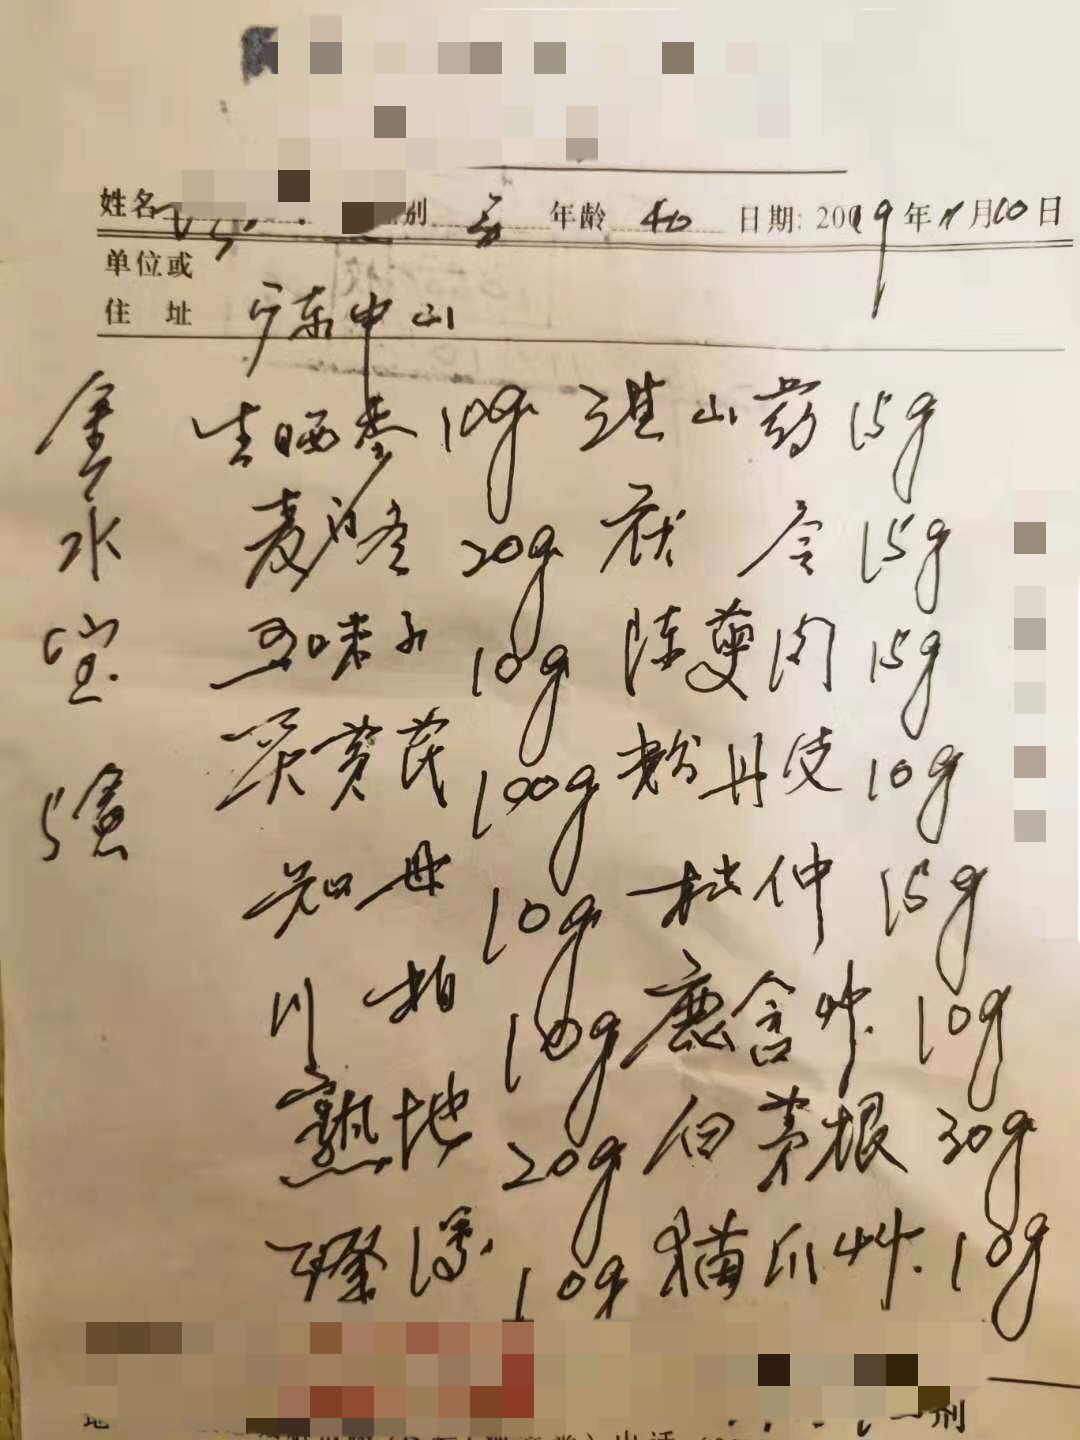 姓名 别 年龄 40 日期: 2009年11月10日
单位或
住 址 广东中山
金 生晒参 10g 淮山药 15g
水 麦门冬 20g 茯 苓 15g
宝 五味子 10g 陈萸肉 15g
炙黄芪 100g 粉丹皮 10g
知母 10g 杜仲 15g
川 柏 10g 鹿含草 10g
熟地 20g 白茅根 30g
10g 猫爪草 10g
一剂